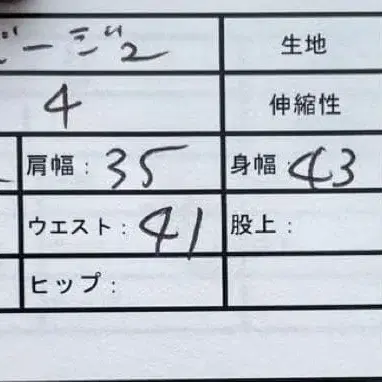 ージュ 生地
4 伸縮性
肩幅: 35 身幅: 43
ウエスト: 41 股上:
ヒップ: